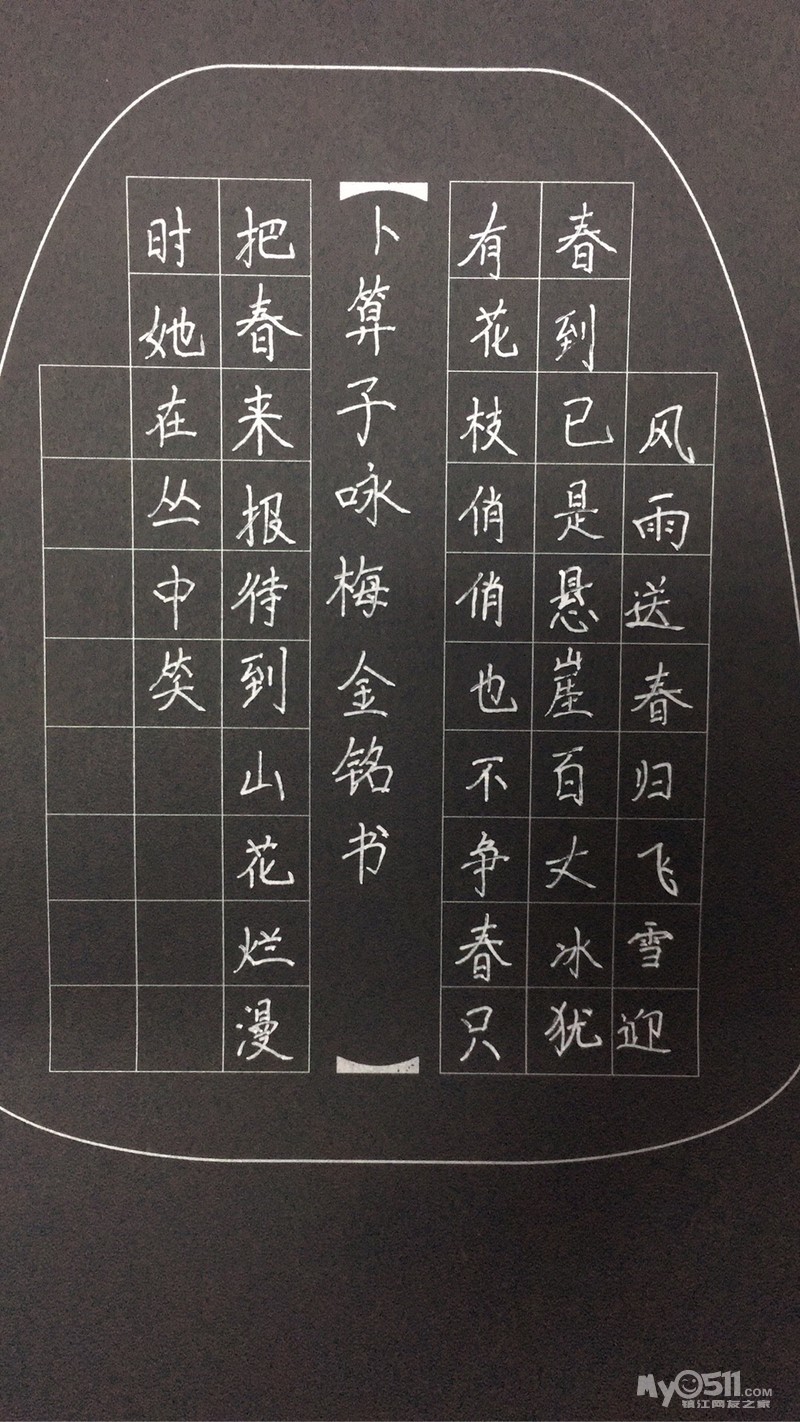 风雨送春归飞雪迎
春到已是悬崖百丈冰犹
有花枝俏俏也不争春只
卜算子咏梅 金铭书
把春来报待到山花烂漫
时她在丛中笑
My0511.COM
镇江网友之家